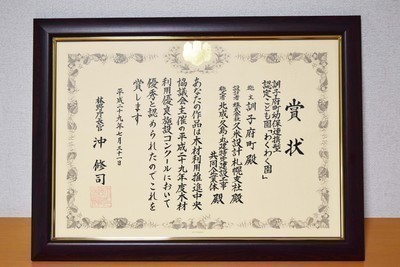 賞状
訓子府町幼保連携型
認定こども園「わくわく園」
施主 訓子府町 殿
設計者 株式会社久米設計札幌支社 殿
施工者 北成・久島・丸建特定建設工事
共同企業体 殿
あなたの作品は木材利用推進中央
協議会主催の平成二十九年度木材
利用優良施設コンクールにおいて
優秀と認められたのでこれを
賞します
平成二十九年七月三十一日
林野庁長官
沖 修司